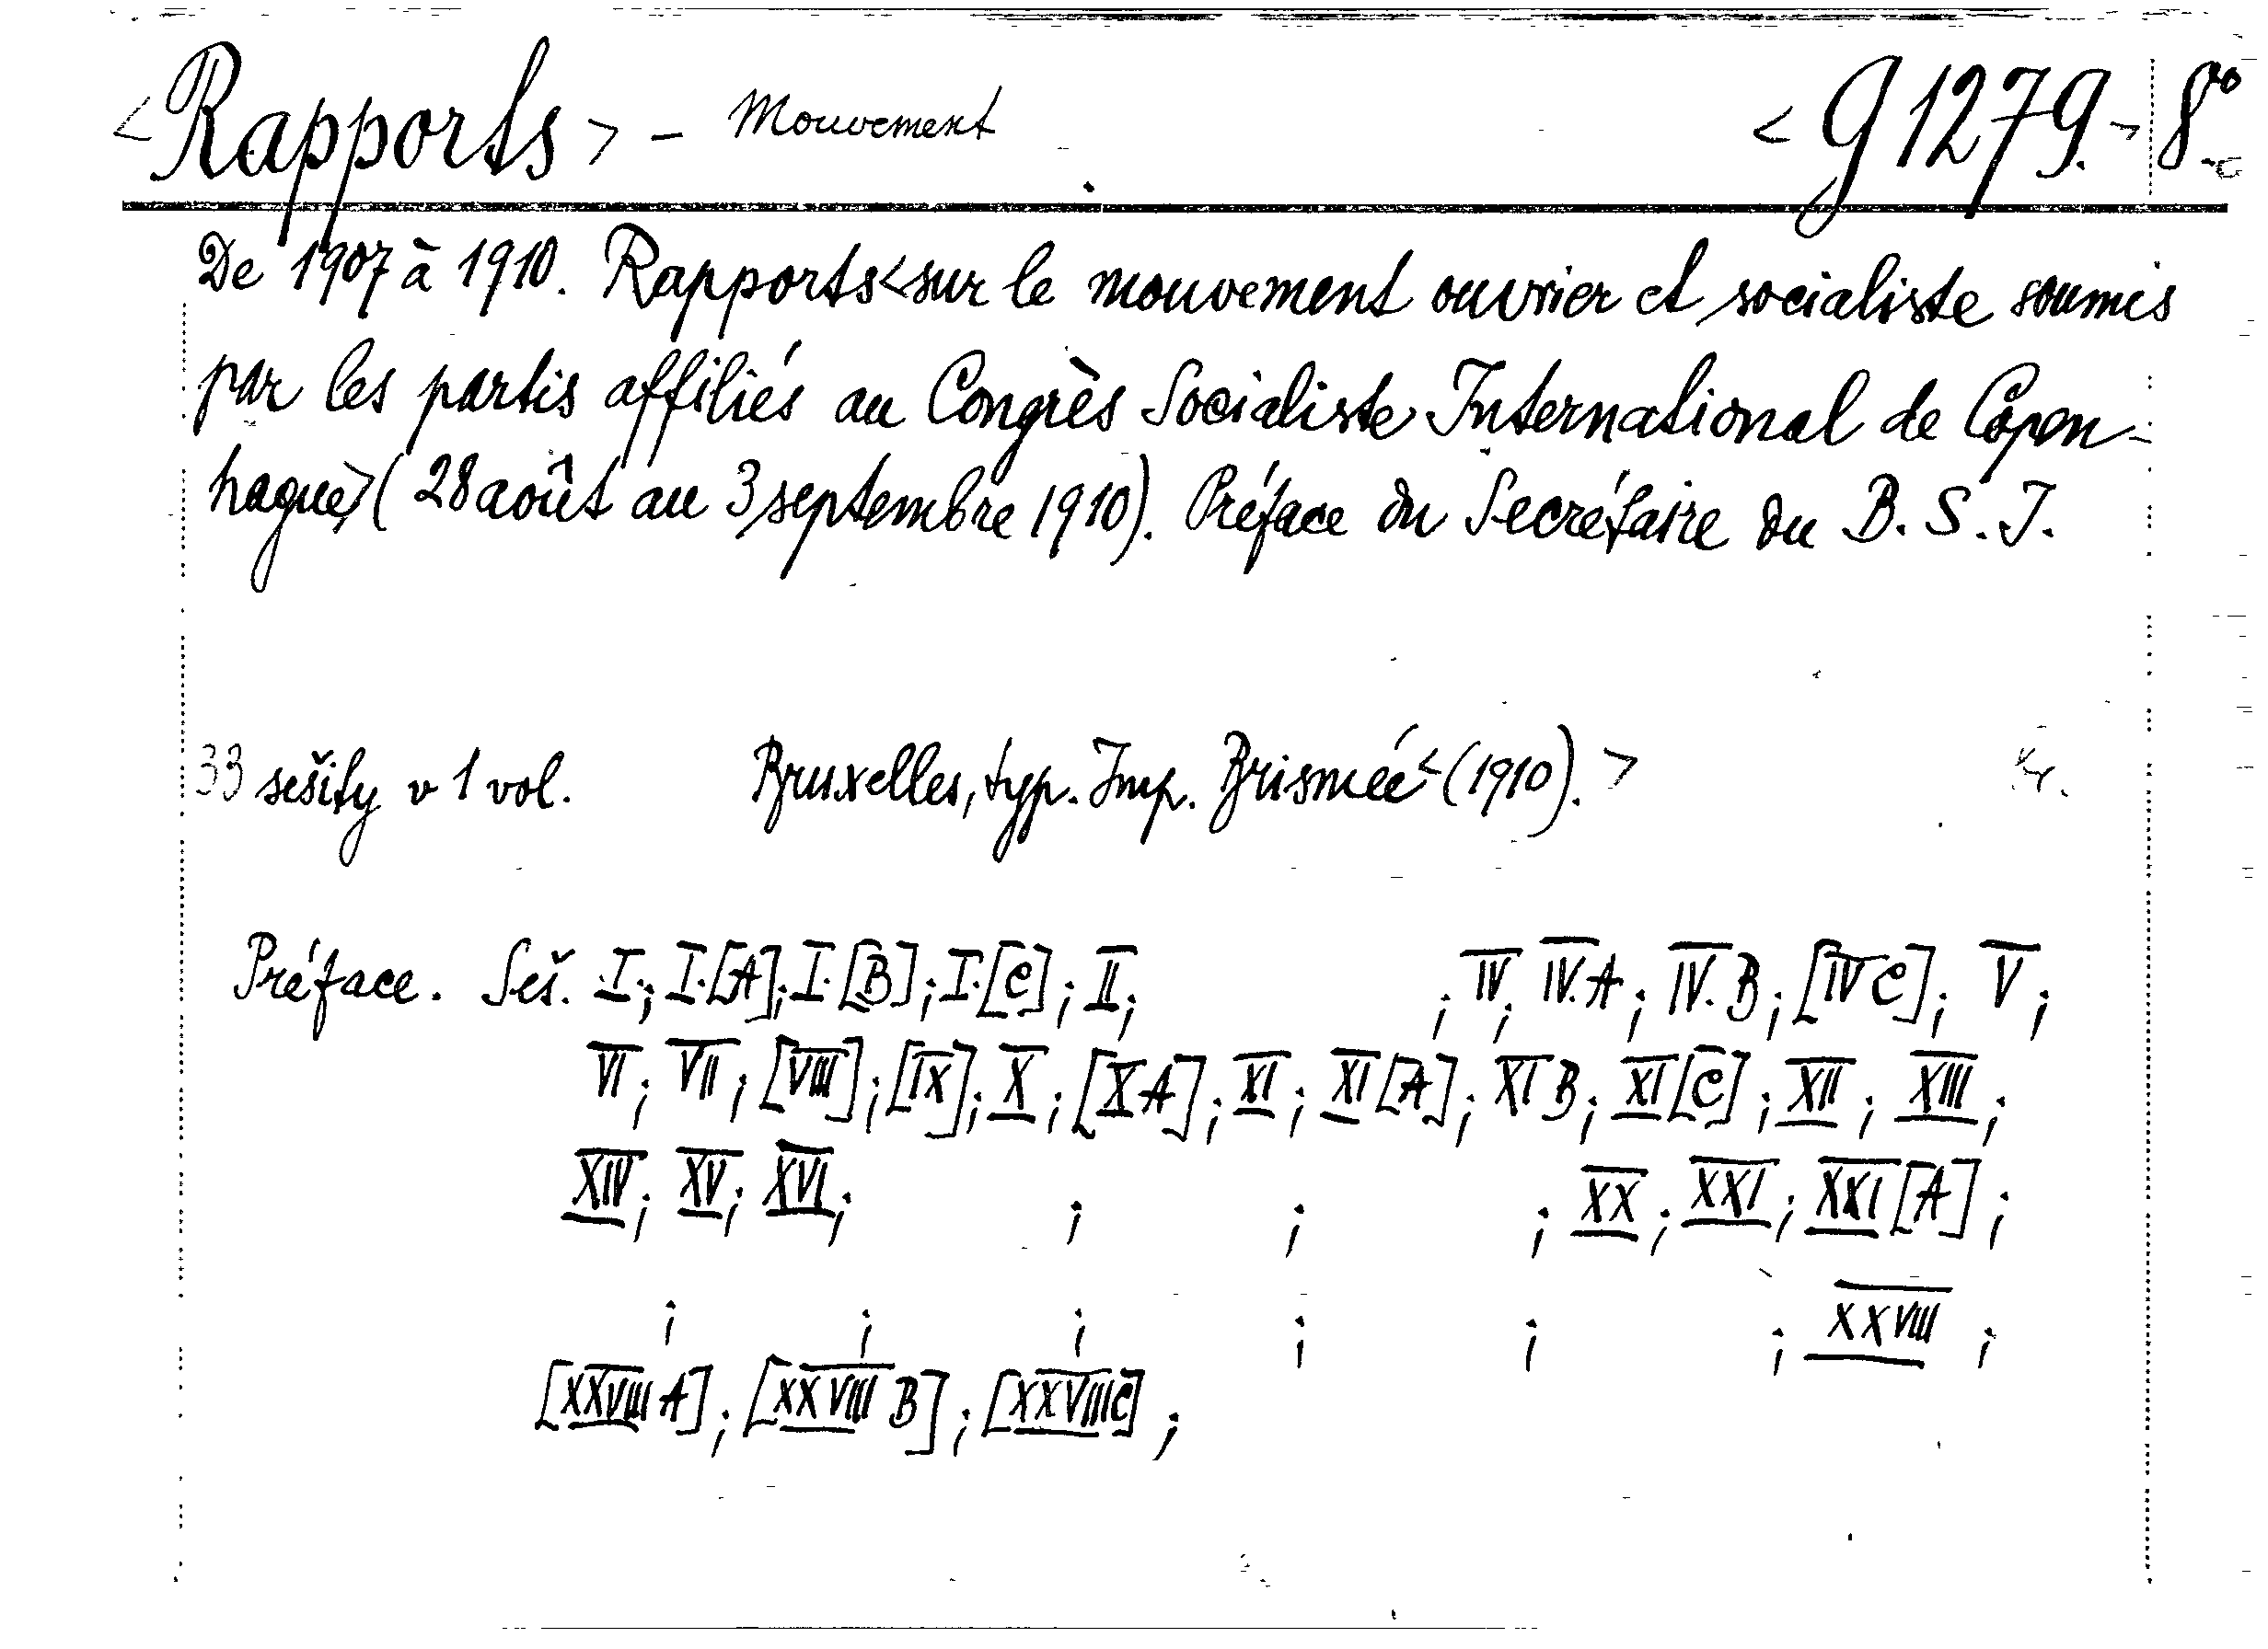 < Rapports > - Mouvement < g 1279. > 8°
De 1907 à 1910. Rapports < sur le mouvement ouvrier et socialiste soumis
par les partis affiliés au Congrès Socialiste International de Copen-
hague > ( 28 août au 3 septembre 1910). Préface du Secrétaire du B. S. I.
33 sešity v 1 vol. Bruxelles, typ. Imp. Brismée < (1910). >
Préface. Seš. I.; I.[A]; I.[B]; I.[C]; II; ; IV; IV.A; IV.B; [IV C]; V;
VI; VII; [VIII]; [IX]; X; [X A]; XI; XI[A]; XI B; XI[C]; XII; XIII;
XIV; XV; XVI; ; ; ; XX; XXI; XXI[A];
; ; ; ; ; ; XXVIII ;
[XXVIII A]; [XXVIII B]; [XXVIII C];